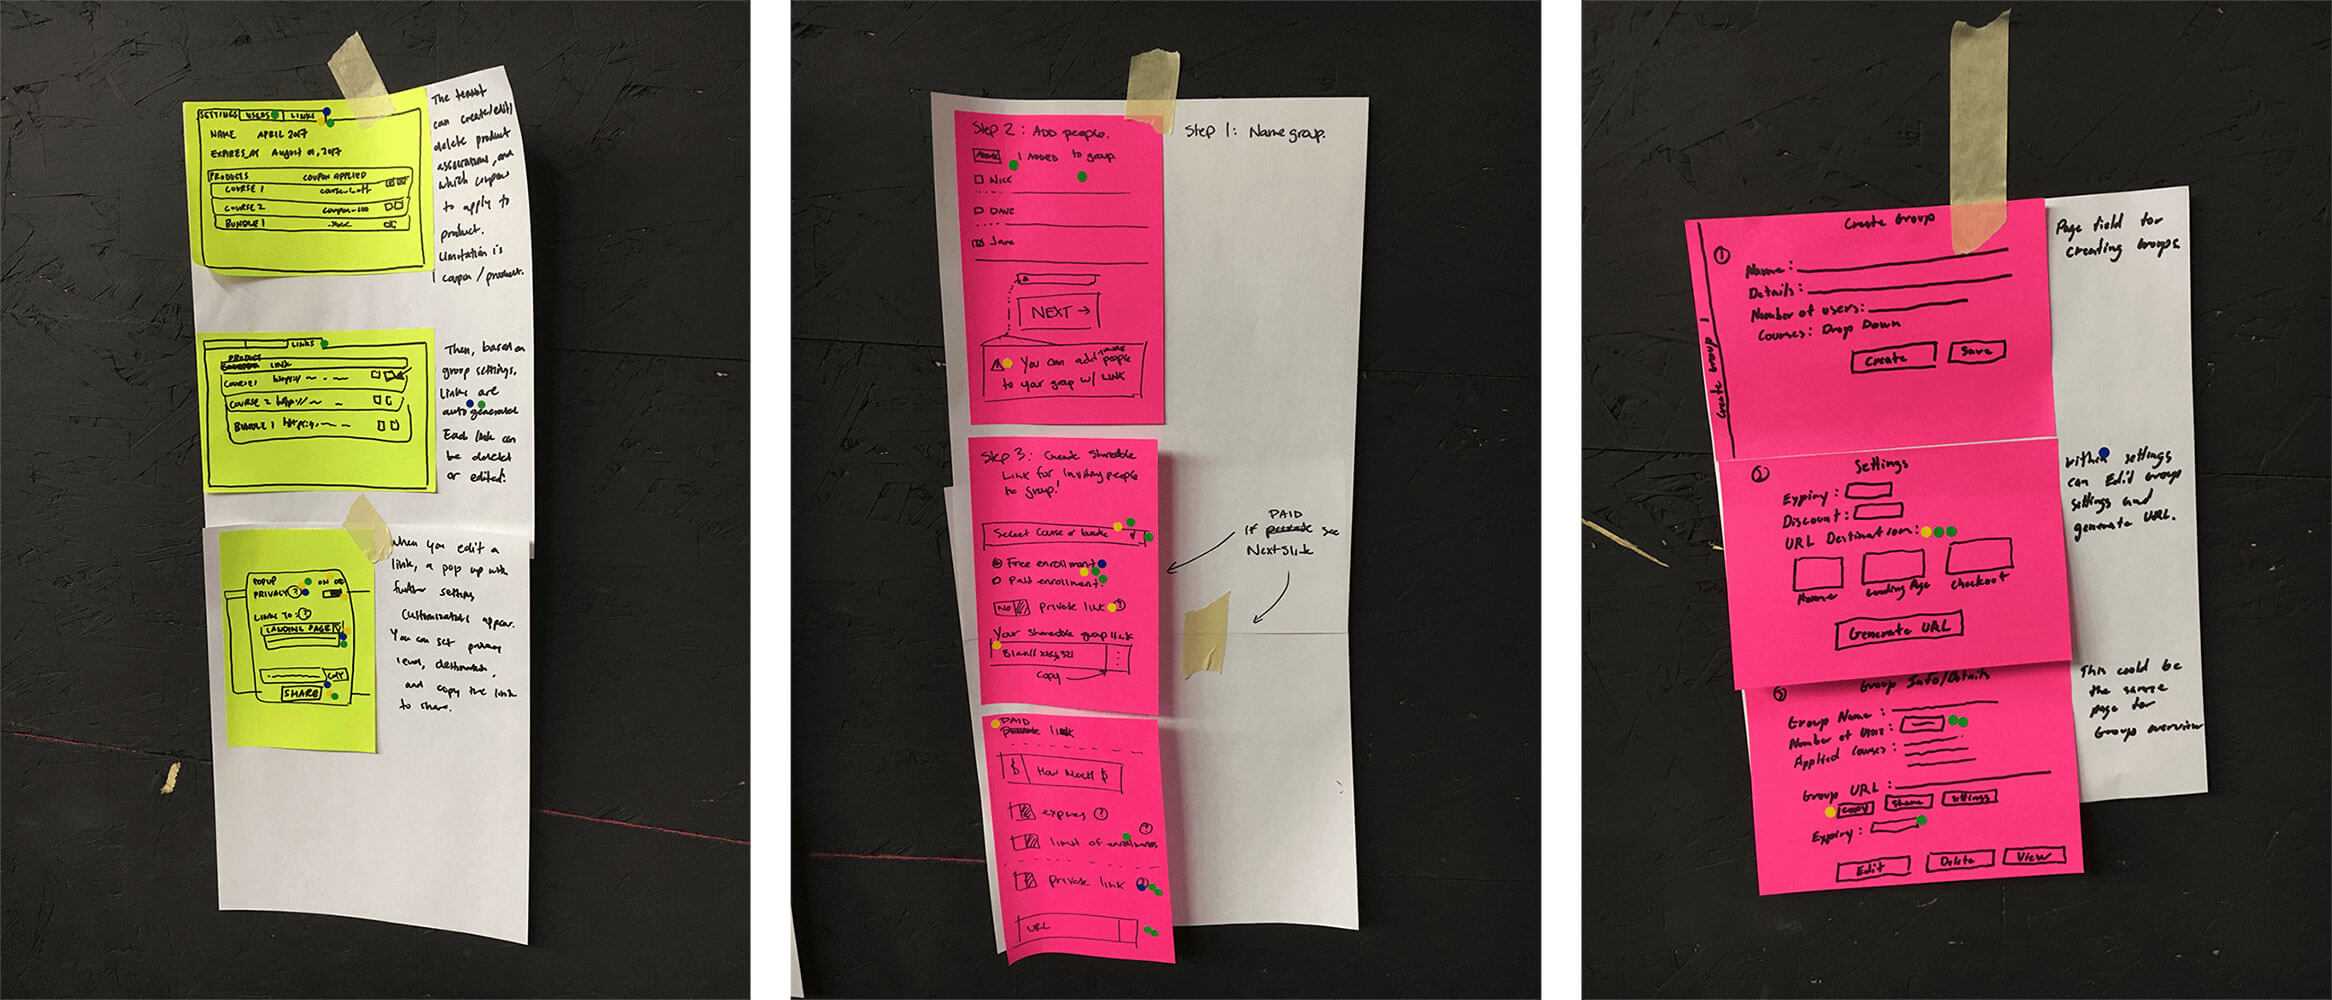 SETTINGS USERS LINKS
NAME APRIL 2017
EXPIRES_AT August 01, 2017
PRODUCTS COUPON APPLIED
COURSE 1
COURSE 2 coupon-100
BUNDLE 1
The tenant
can create/edit/
delete product
associations, and
which coupons
to apply to
product.
Limitation is
1 coupon / product.
LINKS
PRODUCT
LINK
COURSE 1 https://
COURSE 2 http://
BUNDLE 1 https://
Then, based on
group settings,
links are
auto generated
Each link can
be deleted
or edited!
POPUP ON
PRIVACY ?
LINKS TO: ?
LANDING PAGE
COPY
SHARE
When you edit a
link, a pop up with
further setting
customizations appear.
You can set privacy
level, destination,
and copy the link
to share.
Step 2: ADD people.
1 ADDED to group
NICK
DAVE
Jane
NEXT →
You can add more people
to your group w/ LINK
Step 1: Name group.
Step 3: Create Shareable
Link for Inviting people
to group!
Select Course or bundle
Free enrollment
Paid enrollment.
NO private link ?
Your shareable group link
copy
PAID
If private see
Next Slide
PAID
private link
$ How Much $
expires ?
?
limit of enrollments
private link ?
URL
Create Group 1
1
Create Group
Name:
Details:
Number of users:
Courses: Drop Down
Create Save
Page field for
Creating Groups
2 Settings
Expiry:
Discount:
URL Destination:
Landing Page Checkout
Generate URL
within settings
can Edit group
settings and
generate URL.
3 Group Info/Details
Group Name:
Number of User:
Applied Courses:
Group URL:
Copy Share Settings
Expiry:
Edit Delete View
This could be
the same
page for
Group overview